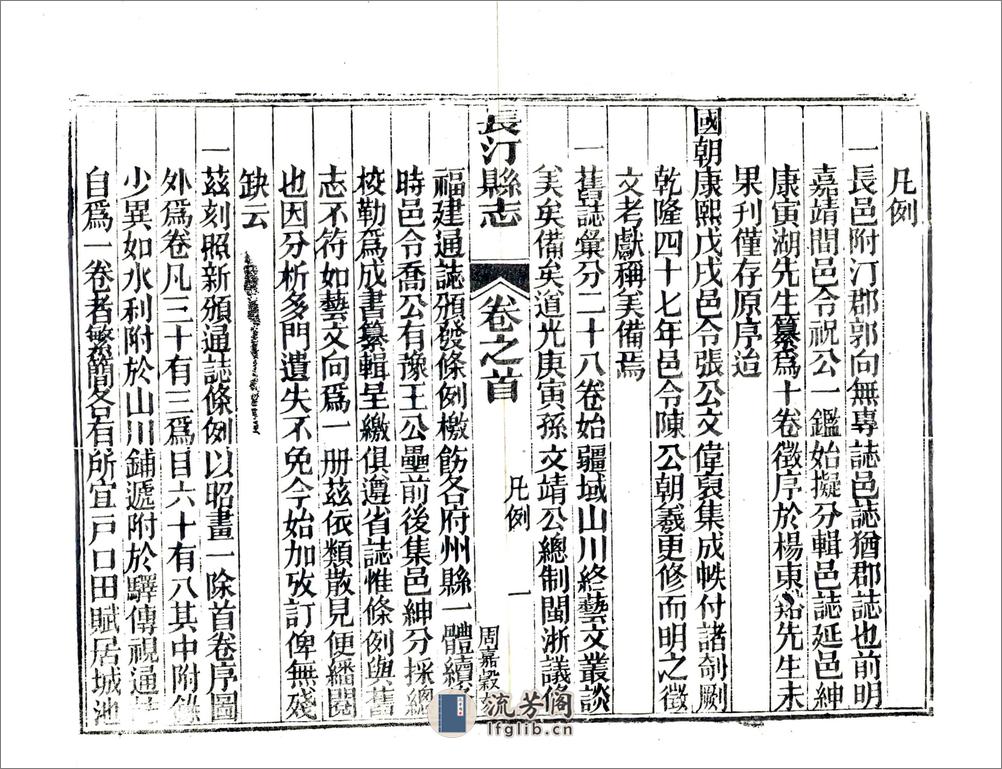 凡例
一長邑附汀郡郭向無專誌邑誌猶郡誌也前明
嘉靖間邑令祝公一鑑始擬分輯邑誌延邑紳
康寅湖先生纂爲十卷徵序於楊東 先生未
果刊僅存原序迨
國朝康熙戊戌邑令張公文偉裒集成帙付諸剞劂
乾隆四十七年邑令陳公朝羲更修而明之徵
文考獻稱美備焉
一舊誌彙分二十八卷始疆域山川終藝文叢談
美矣備矣道光庚寅孫文靖公總制閩浙議修
長汀縣志
卷之首
凡例
一
周嘉穀
福建通誌頒發條例檄飭各府州縣一體續
時邑令喬公有豫王公壘前後集邑紳分採總
校勒爲成書纂輯呈繳俱遵省誌惟條例與舊
志不符如藝文向爲一册茲依類散見便繙閱
也因分析多門遺失不免今始加攷訂俾無殘
缺云
一茲刻照新頒通誌條例以昭畫一除首卷序圖
外爲卷凡三十有三爲目六十有八其中附錄
少異如水利附於山川鋪遞附於驛傳視通誌
自爲一卷者繁簡各有所宜戸口田賦居城池
流芳阁
lfglib.cn